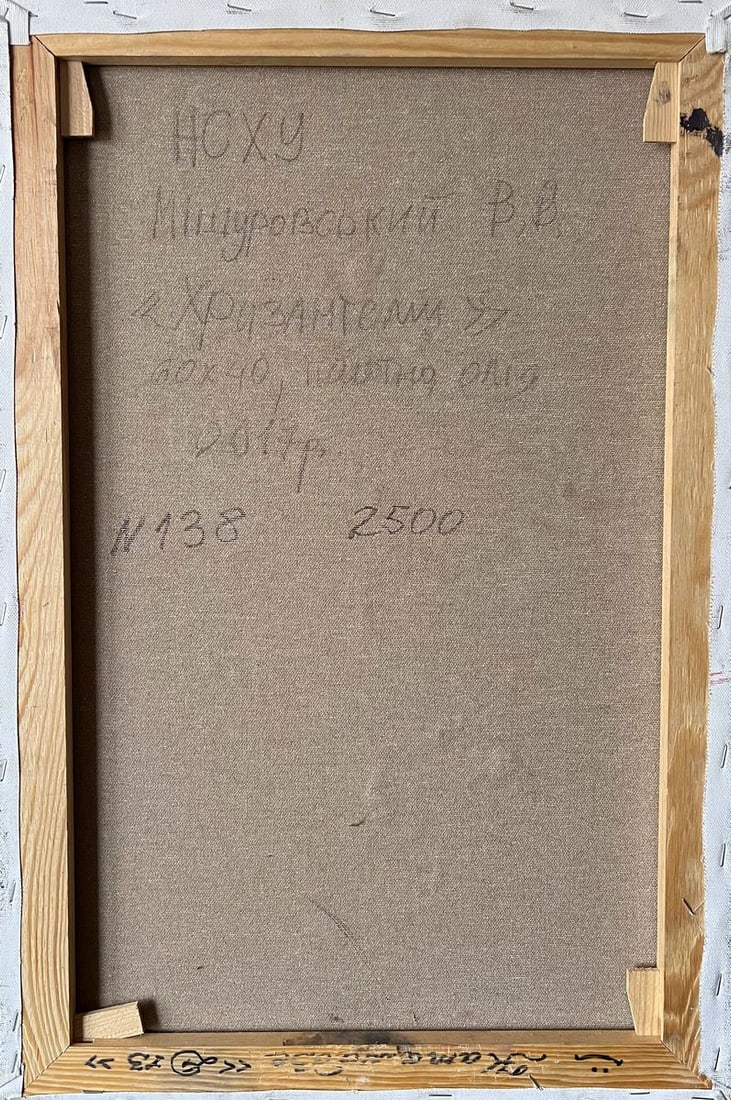 НСХУ
Міщуровський В.В.
« Хризантеми »
60х40, полотно, олія
2017р.
N138 2500